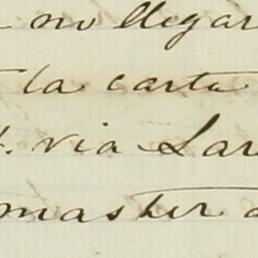 no llegar
la carta
via Lar
master